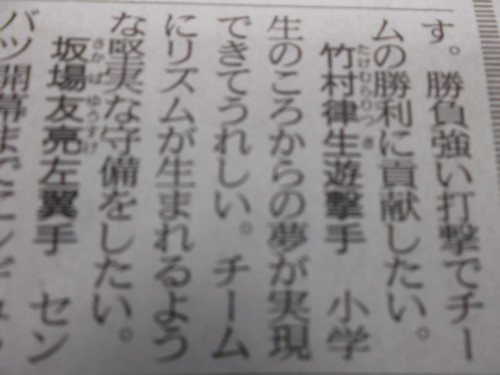 す。勝負強い打撃でチー
ムの勝利に貢献したい。
竹村律生遊撃手 小学
たけむらりつき
生のころからの夢が実現
できてうれしい。チーム
にリズムが生まれるよう
な堅実な守備をしたい。
坂場友亮左翼手 セン
さかばゆうすけ
バツ開幕までに